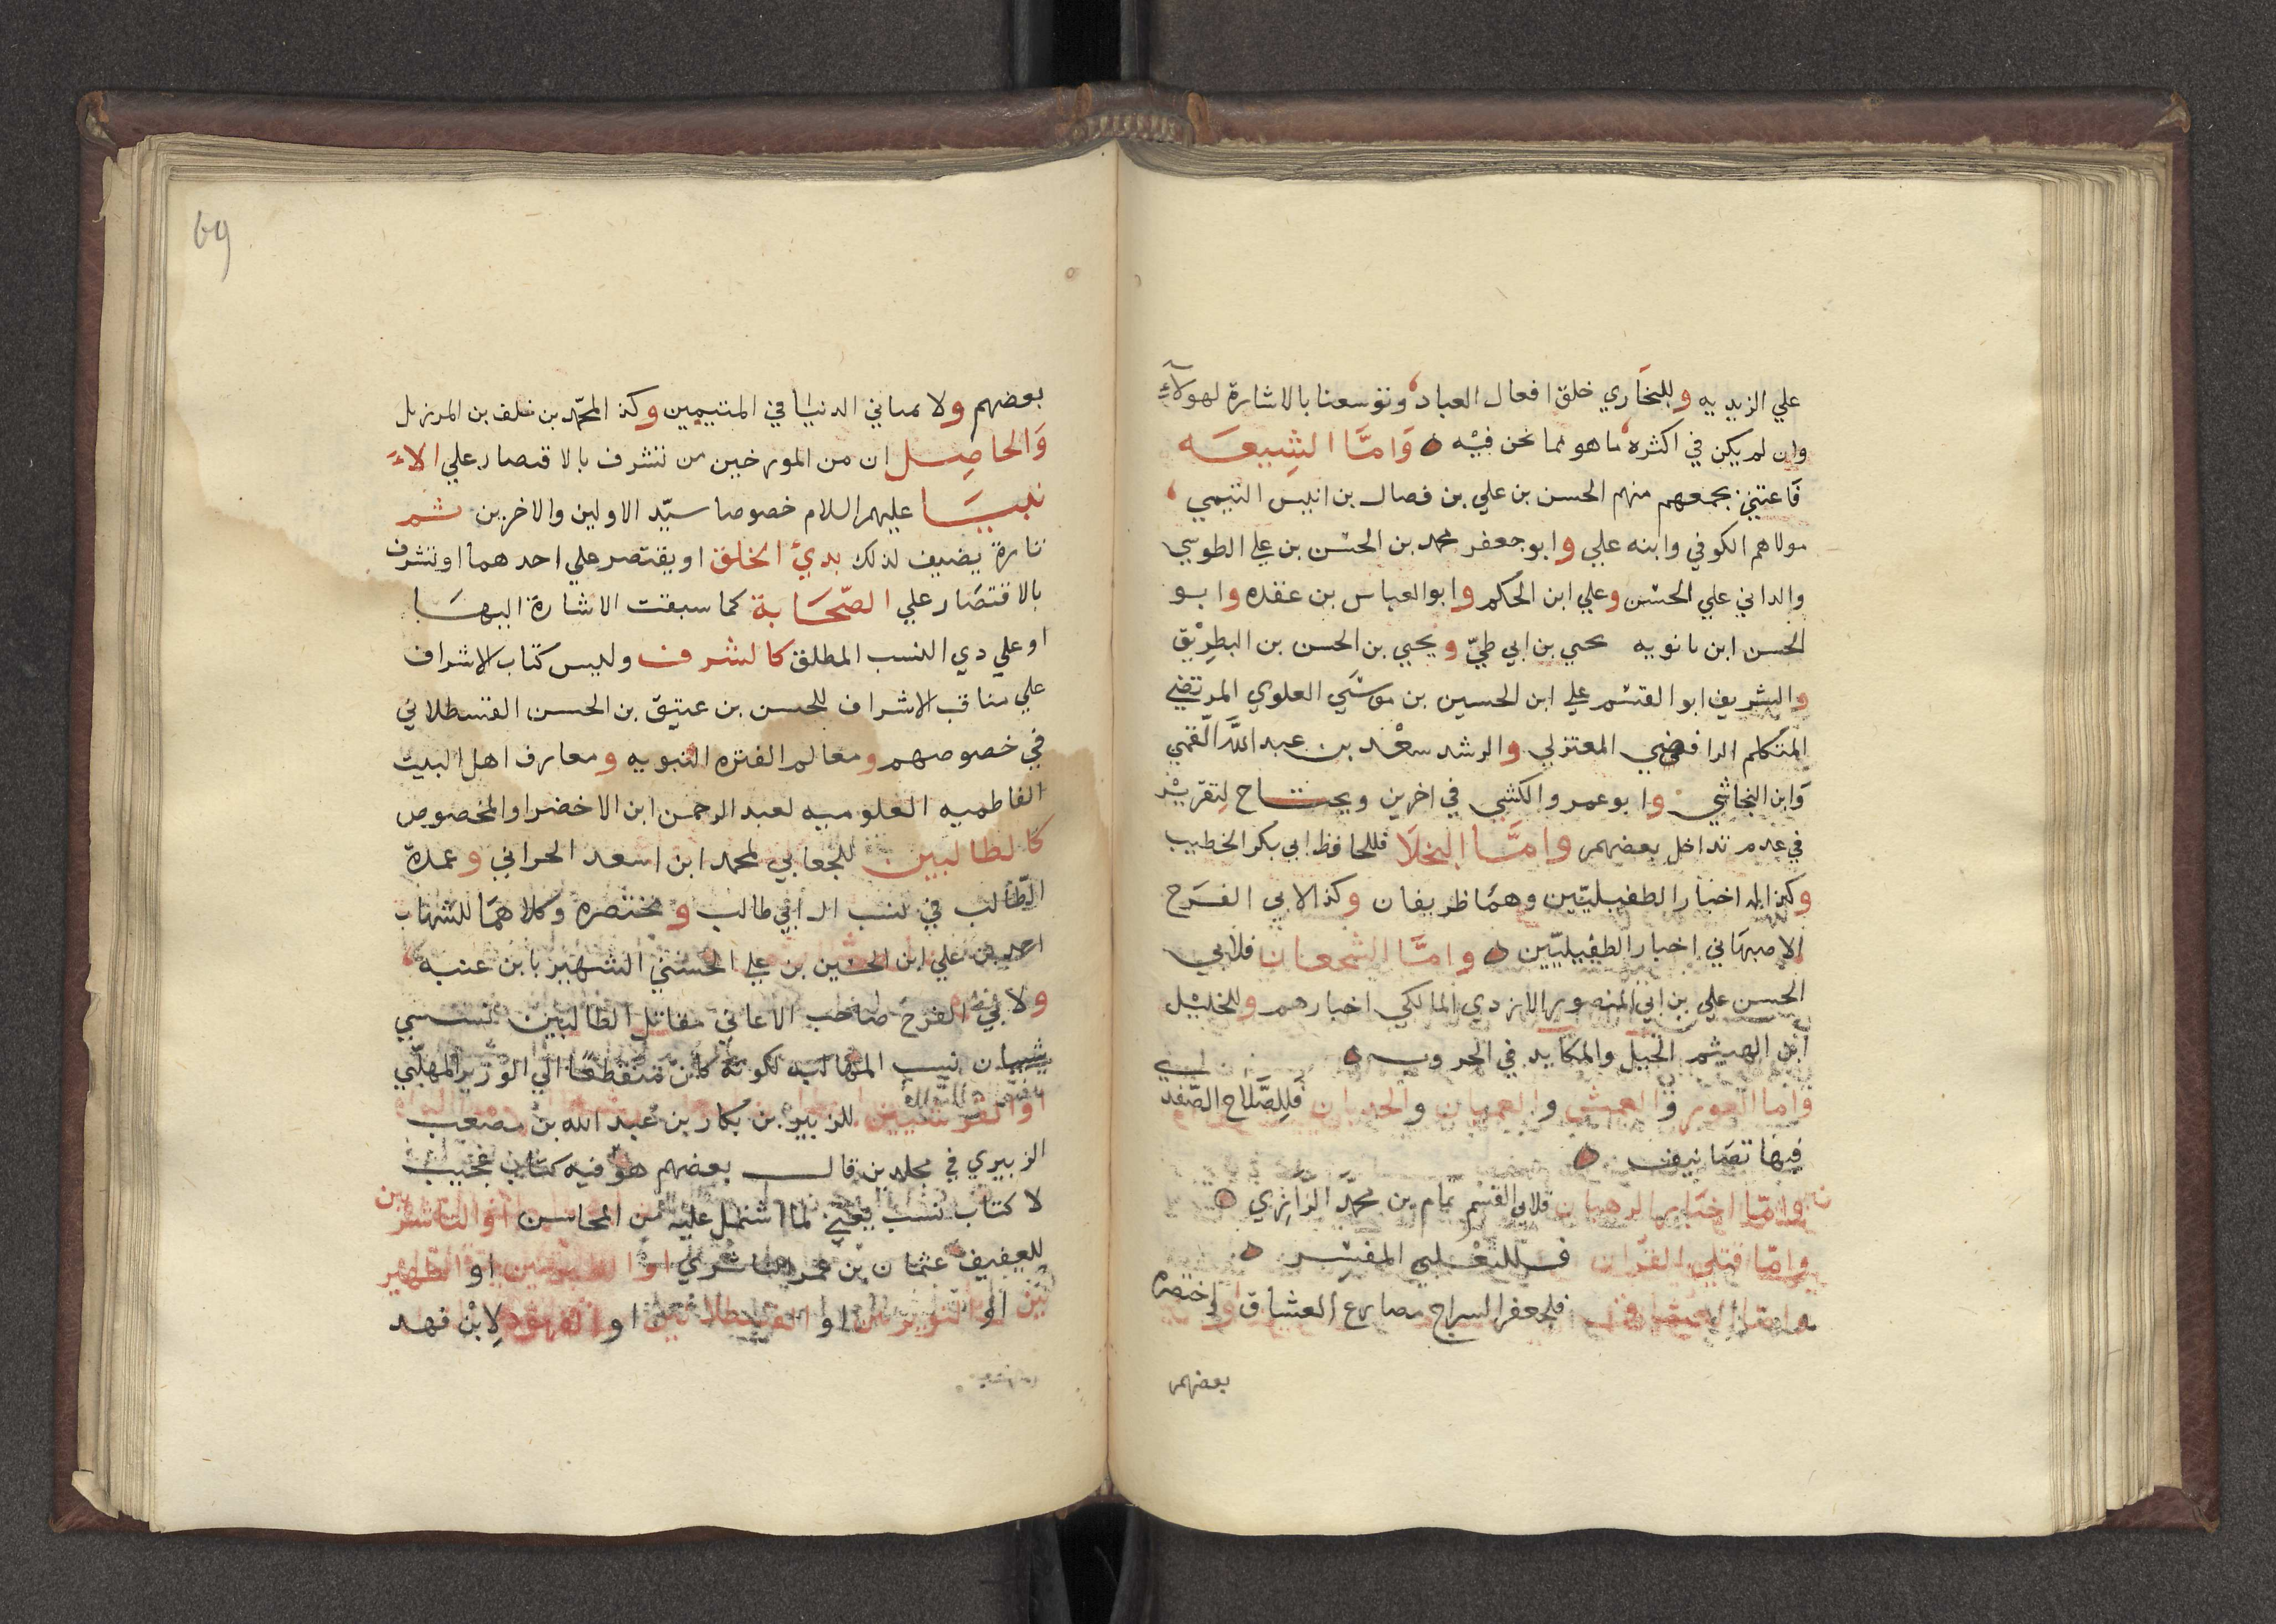 علي الزيديه وللبخاري خلق افعال العباد وتوسعنا بالاشارة لهولآء
وان لم يكن في اكثره ما هو مما نحن فيه وَامَّا الشِيعَه
فَاعتني بجمعهم منهم الحسن بن علي بن فصال بن انيس التيمي
مولاهم الكوفي وابنه علي وابو جعفر محمد بن الحسن بن علي الطوسي
والداني علي الحسن وعلي ابن الحكم وابو العباس بن عقده وابو
الحسن ابن بانويه يحيي بن ابي طيّ ويحيي بن الحسن بن البطرِيْق
والشريف ابو القسم علي ابن الحسين بن موسَي العلوي المرتضي
المتكلم الرافضي المعتزلي والرشد سعْد بن عبد الله القمي
وَابن النجاشي وابو عمرو الكشي في اخرين ويحتاح لِتقرِيْر
في عدم تداخل بعضهم وامَّا البخلَا فللحافظ ابي بكر الخطيب
وكذا له اخبار الطفيليّين وهمَا ظريفان وكذا لابي الفرَح
الاصبهَاني اخبار الطفيليّين وامَّا الشجعان فلابي
الحسن علي بن ابي المنصور الازدي المالكي اخبارهم وللخليْل
ابن الهيثم الحيل والمكايد في الحروب
وامّا العور والعمش والعميان والحدبان فَلِلصَّلاح الصّفدي
فيهَا تصَانيف
وامّا اخبار الرهبان فلابي القسم تمام بن محمّد الرَّازِي
وامّا قتلي القرّان فللثعْلبي المفسِر
وامّا العشاق فلجعفر السراج مصارع العشاق واختصره
بعضهم
69
بعضهم ولابن ابي الدنيَا في المتيمين وكذا لمحمّد بن خلف بن المرزبان
وَالحاصِل ان من المورخين من تشرف بالاقتصار علي الاَ
نبيَا عليهم السلام خصوصا سيّد الاولين والاخرين ثم
تارة يضيف لذلك بديُ الخلق او يقتصر علي احدهما او تشرف
بالاقتصَار علي الصّحَابة كما سبقت الاشارة اليهَا
او علي دي النسب المطلق كالشرف وليس كتاب الاشراف
علي مناقب الاشراف للحسن بن عتيق بن الحسن القسطلاني
في خصوصهم ومعالم الفتره النبويه ومعارف اهل البيت
الفاطميه العلوميه لعبد الرحمن ابن الاخضر او المخصوص
كالطالبين للجعابي لمحمد ابن اسعد الحراني وعمدة
الطّالب في نسب ال ابي طالب ومختصره وكلاهمَا للشهاب
احمد بن علي ابن الحسين بن علي الحسني الشهير بابن عنبه
ولابي الفرح صاحب الاغاني مقاتل الطالبين نسب بني
شيبان نسب المهالبه لكونه كان منقطعًا الي الوزير المهلّبي
او القرشيين للزبير بن بكار بن عبد الله بن مصعب
الزبيري في مجلدين قال بعضهم هو فيه كتاب عجيب
لا كتاب نسب يعني لما اشتمل عليه من المحاسن او الناشريين
للعفيف عثمان بن عمر الناشري او الطبريين او الظهير
يين او النويريين او القسطلانيين او الفهود لِابن فهد